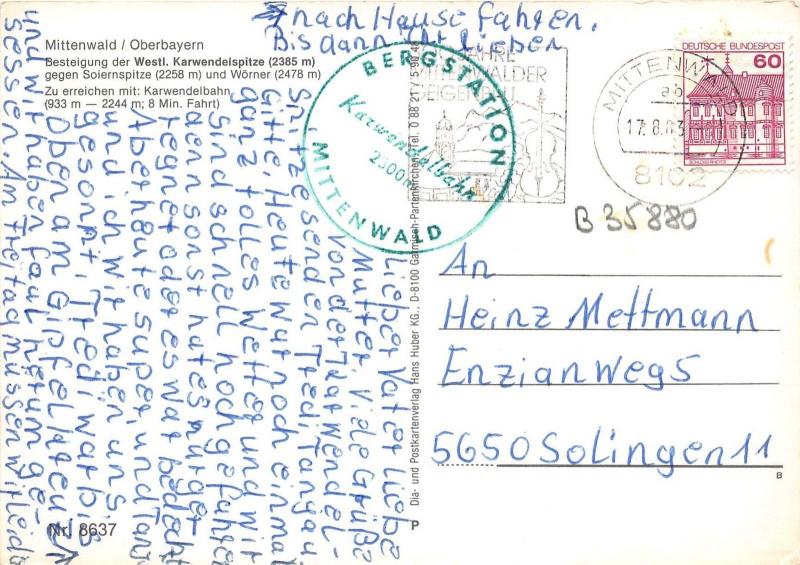 Mittenwald / Oberbayern
Besteigung der Westl. Karwendelspitze (2385 m)
gegen Soiernspitze (2258 m) und Wörner (2478 m)
Zu erreichen mit: Karwendelbahn
(933 m — 2244 m; 8 Min. Fahrt)
Lieber Vater Liebe
Mutter, Viele Grüße
von der Karwendel-
spitze senden Tredi, Tanja u
Gitte Heute war noch einmal
ganz tolles Wetter und wir
sind schnell hoch gefahren
den sonst hat es nur ge
regnet oder es war bedeckt
Aber heute super, und Tanja
und ich wir haben uns
gesonnt, Tredi war
Oben am Gipfel
und wir haben faul herum ge-
sessen. Am Freitag müssen wir leider
nach Hause fahren.
Bis dann, Ihr Lieben
Nr. 8637
BERGSTATION
Karwendelbahn
2300m
MITTENWALD
JAHRE
MITTENWALDER
GEIGENBAU
MITTENWALD
17.8.83
8102
DEUTSCHE BUNDESPOST
60
B 35880
Dia- und Postkartenverlag Hans Huber KG., D-8100 Garmisch-Partenkirchen, Tel. 0 88 21 / 5 90 48
An
Heinz Mettmann
Enzianweg 5
5650 Solingen 11
B
P